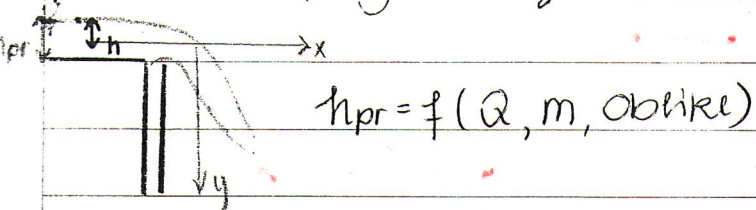 hpr
h
x
hpr = f (Q, m, oblike)
y